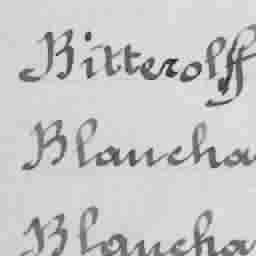 Bitterolff
Blancha
Blancha